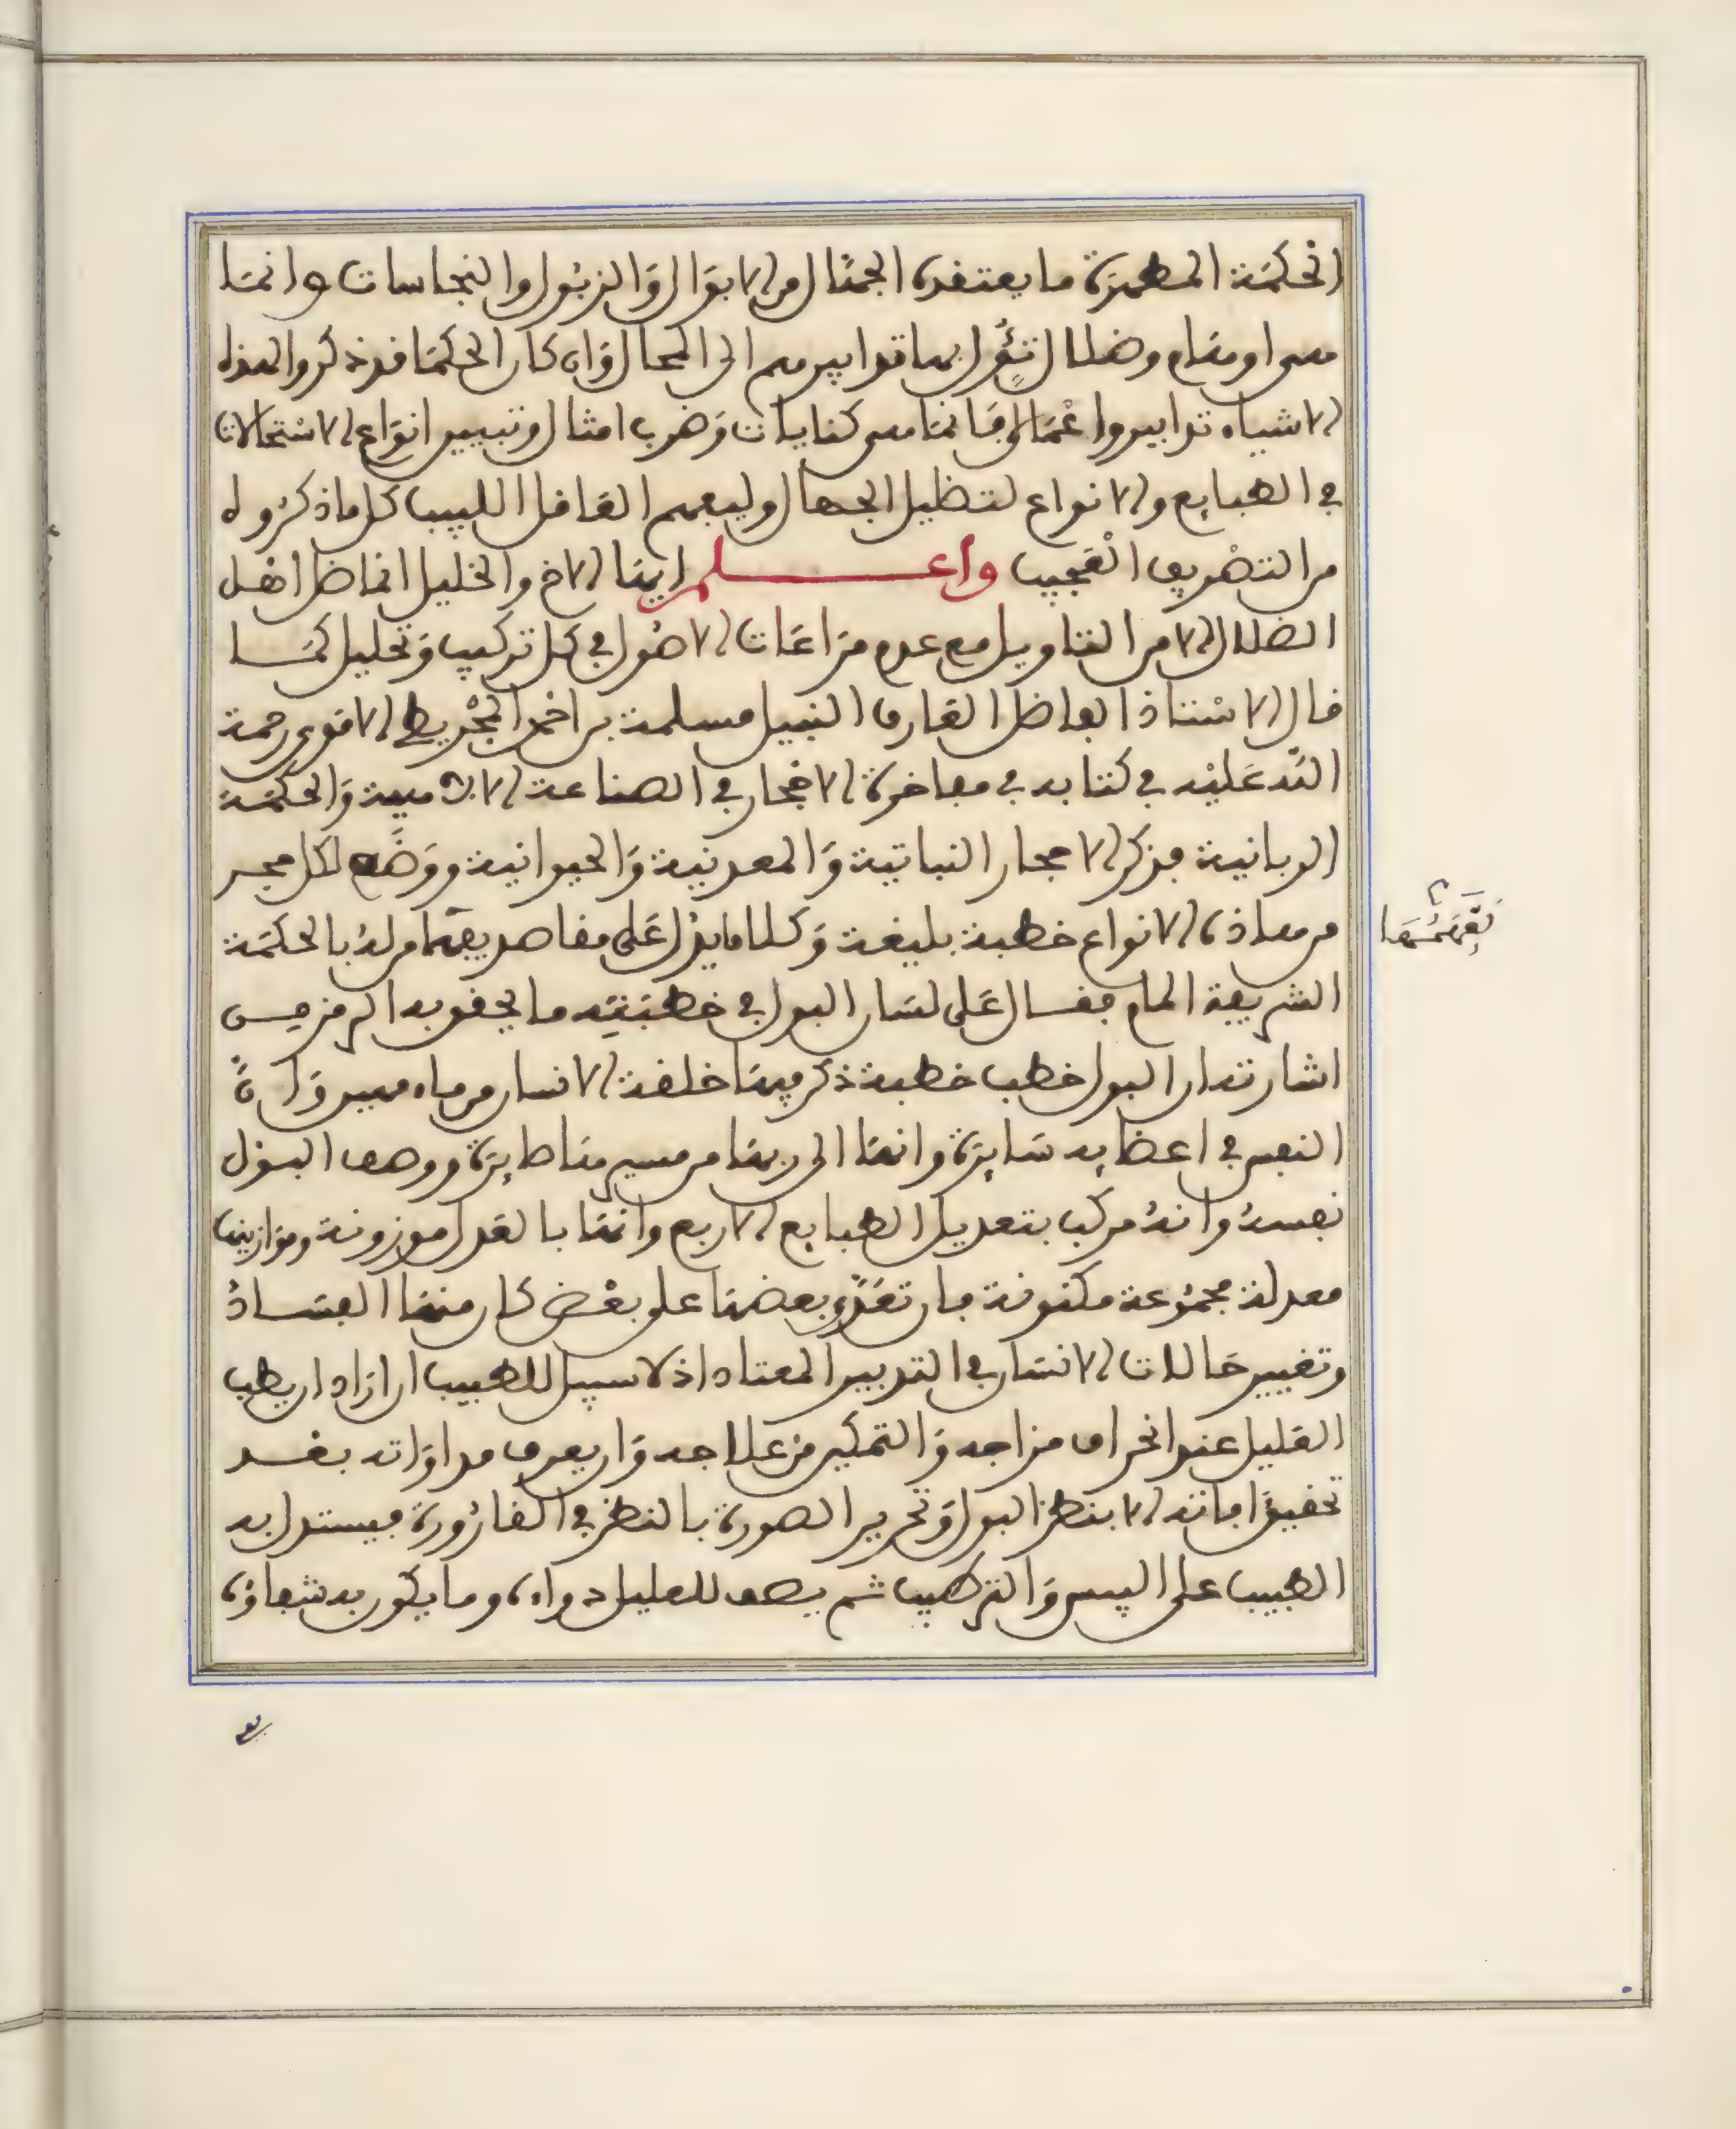 الحكمة المطهرة ما يعتقده الجهال من الابوال والزبول والنجاسات وانما
هي اوهام وضلال تئول بها تدابيرهم الى المحال وان كان الحكما قد ذكروا لهذه
الاشياء تدابير واعمال فانما هي كنايات وضرب امثال وتبيين انواع الاستحالات
في الطبايع والانواع لتظليل الجهال وليفهم العاقل اللبيب كل ما ذكروه
من التصريف العجيب واعلم ايها الاخ والخليل انما ضل اهل
الضلال الا من التاويل مع عدم مراعات الاصول في كل تركيب وتحليل كما
قال الاستاذ الفاضل العارف النبيل مسلمة بن احمد المجريطي الاموي رحمة
الله عليه في كتابه في مفاخرة الاحجار في الصناعة الالاهية والحكمة
الربانية فذكر الاحجار النباتية والمعدنية والحيوانية ووضع لكل حجر
من هاذه الانواع خطبة بليغة وكلاما يدل على مقاصد يفهما من له بالحكمة
يفهمها
الشريفة المام فقال على لسان البول في خطبته ما يحق به الرمز من
اشارته ان البول خطب خطبة ذكر فيها خلقة الانسان من ماء مهين وان
النفس في اعضايه سايرة وانها الى ربها من سير طايرة ووصف البول
نفسه وانه مركب بتعديل الطبايع الاربع وانها بالعدل موزونة وموازينها
معدلة مجموعة مكفوفة فان تعدى بعضها على بعض كان منها الفساد
وتغيير حالات الانسان في التدبير المعتاد اذ لا سبيل للطبيب ان اراد ان يطب
العليل عند انحراف مزاجه والتمكين من علاجه وان يعرف مداواته بعد
تحقيق افاته الا بنظر البول وتحرير الصورة بالنظر في القارورة فيستدل به
الطبيب على اليبس والتركيب ثم يصف للعليل دواه وما يكون به شفاؤه